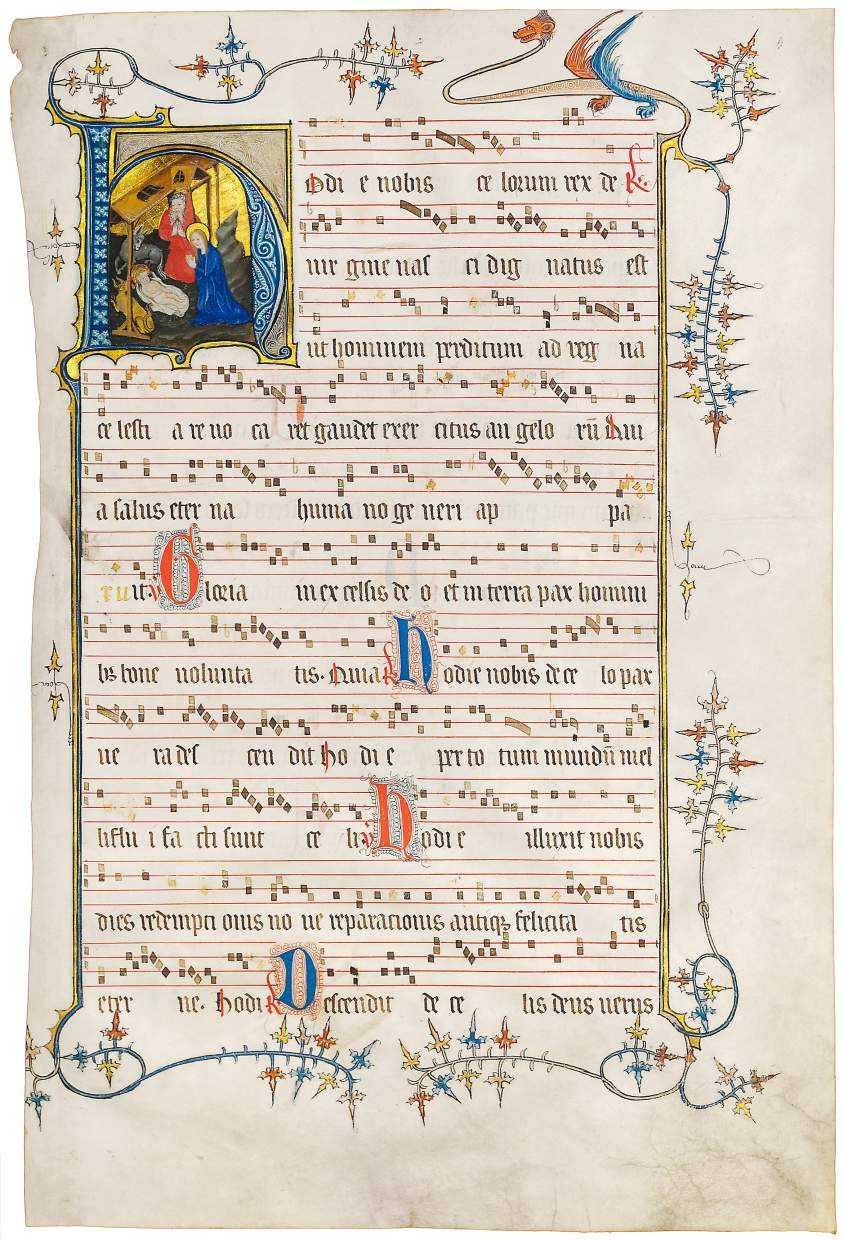 Hodi e nobis ce lorum rex de ℟.
uir gine nas ci dig natus est
ut hominem perditum ad reg na
ce lesti a re uo ca ret gaudet exer citus an gelo rū Qui
a salus eter na huma no ge neri ap pa
ruit ℣ Gloria in ex celsis de o et in terra pax homini
bꝫ bone uolunta tis. Quia ℟ Hodie nobis de ce lo pax
ue ra des cen dit Ho di e per to tum mundū mel
liflu i fa cti sunt ce li ℣ Hodi e illuxit nobis
dies redempti onis no ue reparacionis antiqꝫ felicita tis
eter ne. Hodi ℟ Descendit de ce lis deus uerus